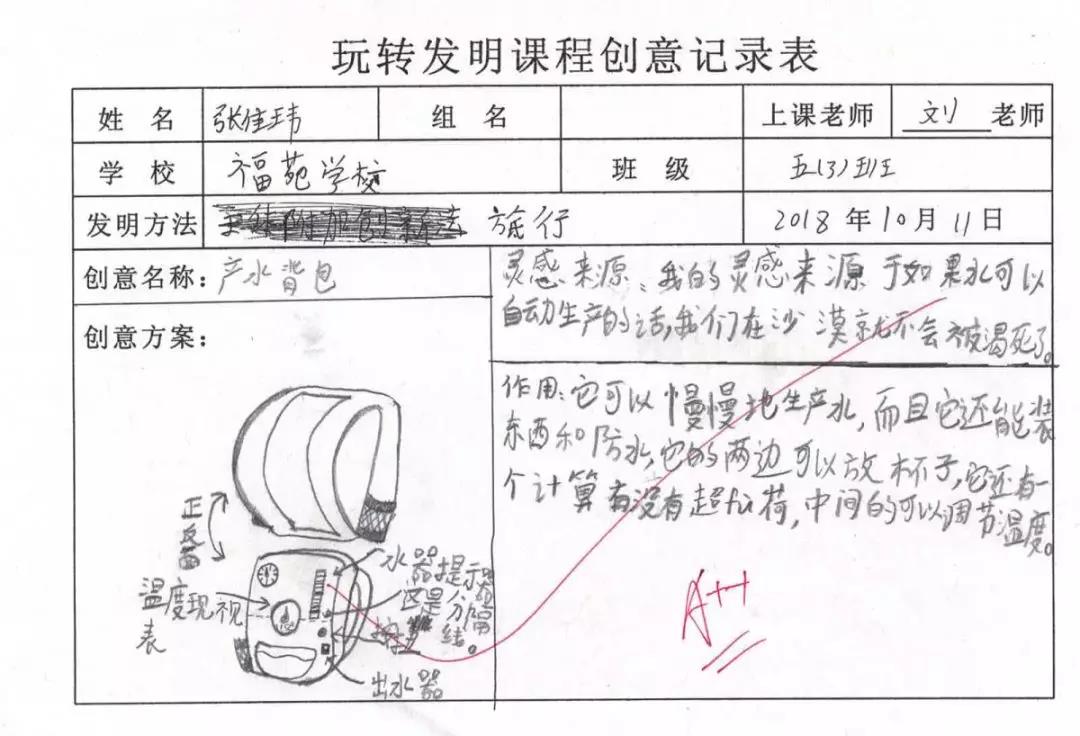 玩转发明课程创意记录表
姓 名 张佳玮 组 名 上课老师 刘 老师
学 校 福苑学校 班 级 五(3)班
发明方法 旅行 2018 年 10 月 11 日
创意名称：产水背包
灵感来源：我的灵感来源于如果水可以
自动生产的话,我们在沙漠就不会被渴死了。
创意方案：
作用：它可以慢慢地生产水,而且它还能装
东西和防水,它的两边可以放杯子,它还有一
个计算有没有超负荷,中间的可以调节温度。
正
反面
水器提示器
这是分隔
线。
温度现视
表
出水器
A++